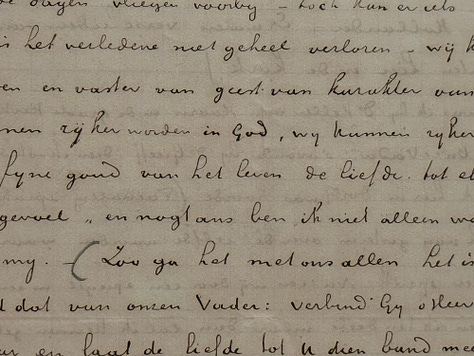 de dagen vliegen voorby - toch kan er iets
is het verledene niet geheel verloren - wy k
en en vaster van geest van karakter van
nen ryker worden in God, wy kunnen ryker
fyne goud van het leven de liefde. tot el
gevoel „ en nogtans ben ik niet alleen wa
my. - ( Zoo ga het met ons allen het is
d dat van onzen Vader: verbind Gy o Heer
ar en laat de liefde tot U dien band me